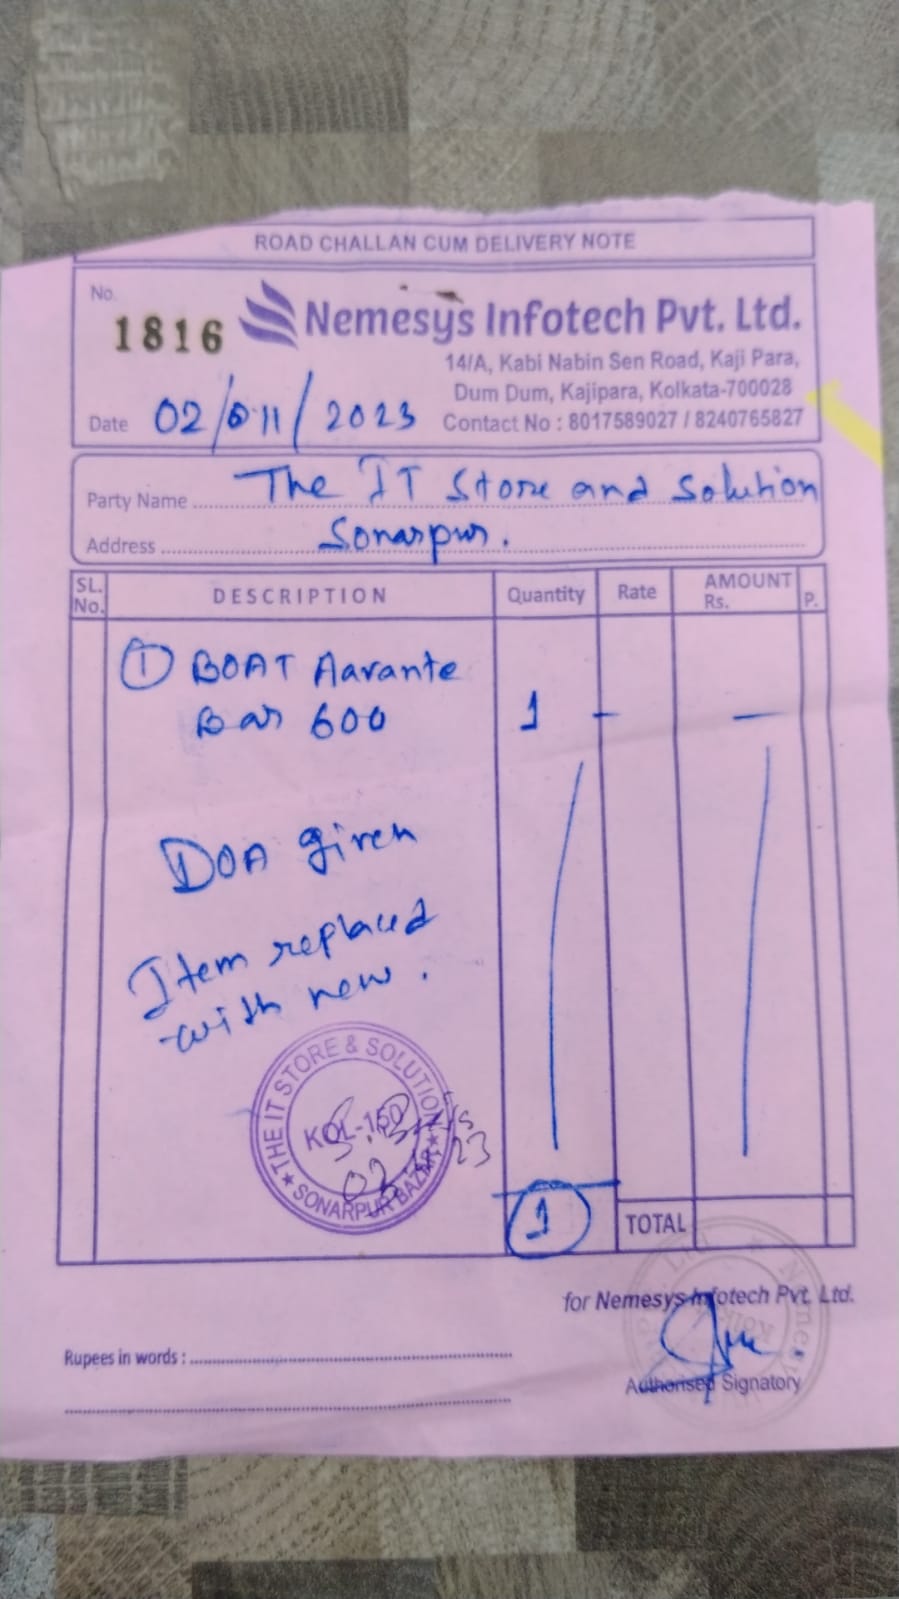 ROAD CHALLAN CUM DELIVERY NOTE
No. 1816
Nemesys Infotech Pvt. Ltd.
14/A, Kabi Nabin Sen Road, Kaji Para,
Dum Dum, Kajipara, Kolkata-700028
Contact No : 8017589027 / 8240765827
Date 02/11/2023
Party Name The IT Store and Solution
Address Sonarpur.
SL. No. DESCRIPTION Quantity Rate AMOUNT Rs. P.
① BOAT Aavante
Bar 600 1 - —
DOA given
Item replaced
with new.
THE IT STORE & SOLUTION
KOL-150
SONARPUR BAZAR
1 TOTAL
for Nemesys Infotech Pvt. Ltd.
Rupees in words :
Authorised Signatory